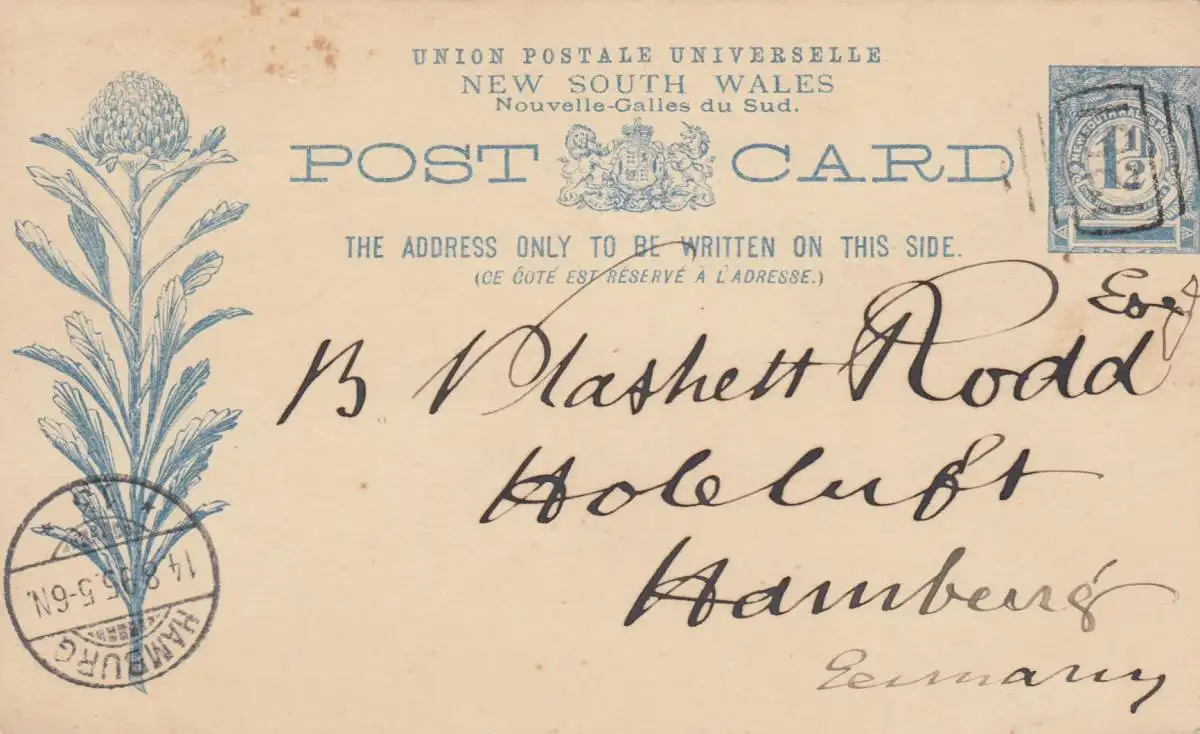 UNION POSTALE UNIVERSELLE
NEW SOUTH WALES
Nouvelle-Galles du Sud.
POST CARD
1 1/2
THE ADDRESS ONLY TO BE WRITTEN ON THIS SIDE.
(CE CÔTÉ EST RÉSERVÉ À L'ADRESSE.)
Esq
B Plashett Rodd
Hoheluft
Hamburg
Germany
HAMBURG
14.8.95.5-6N.